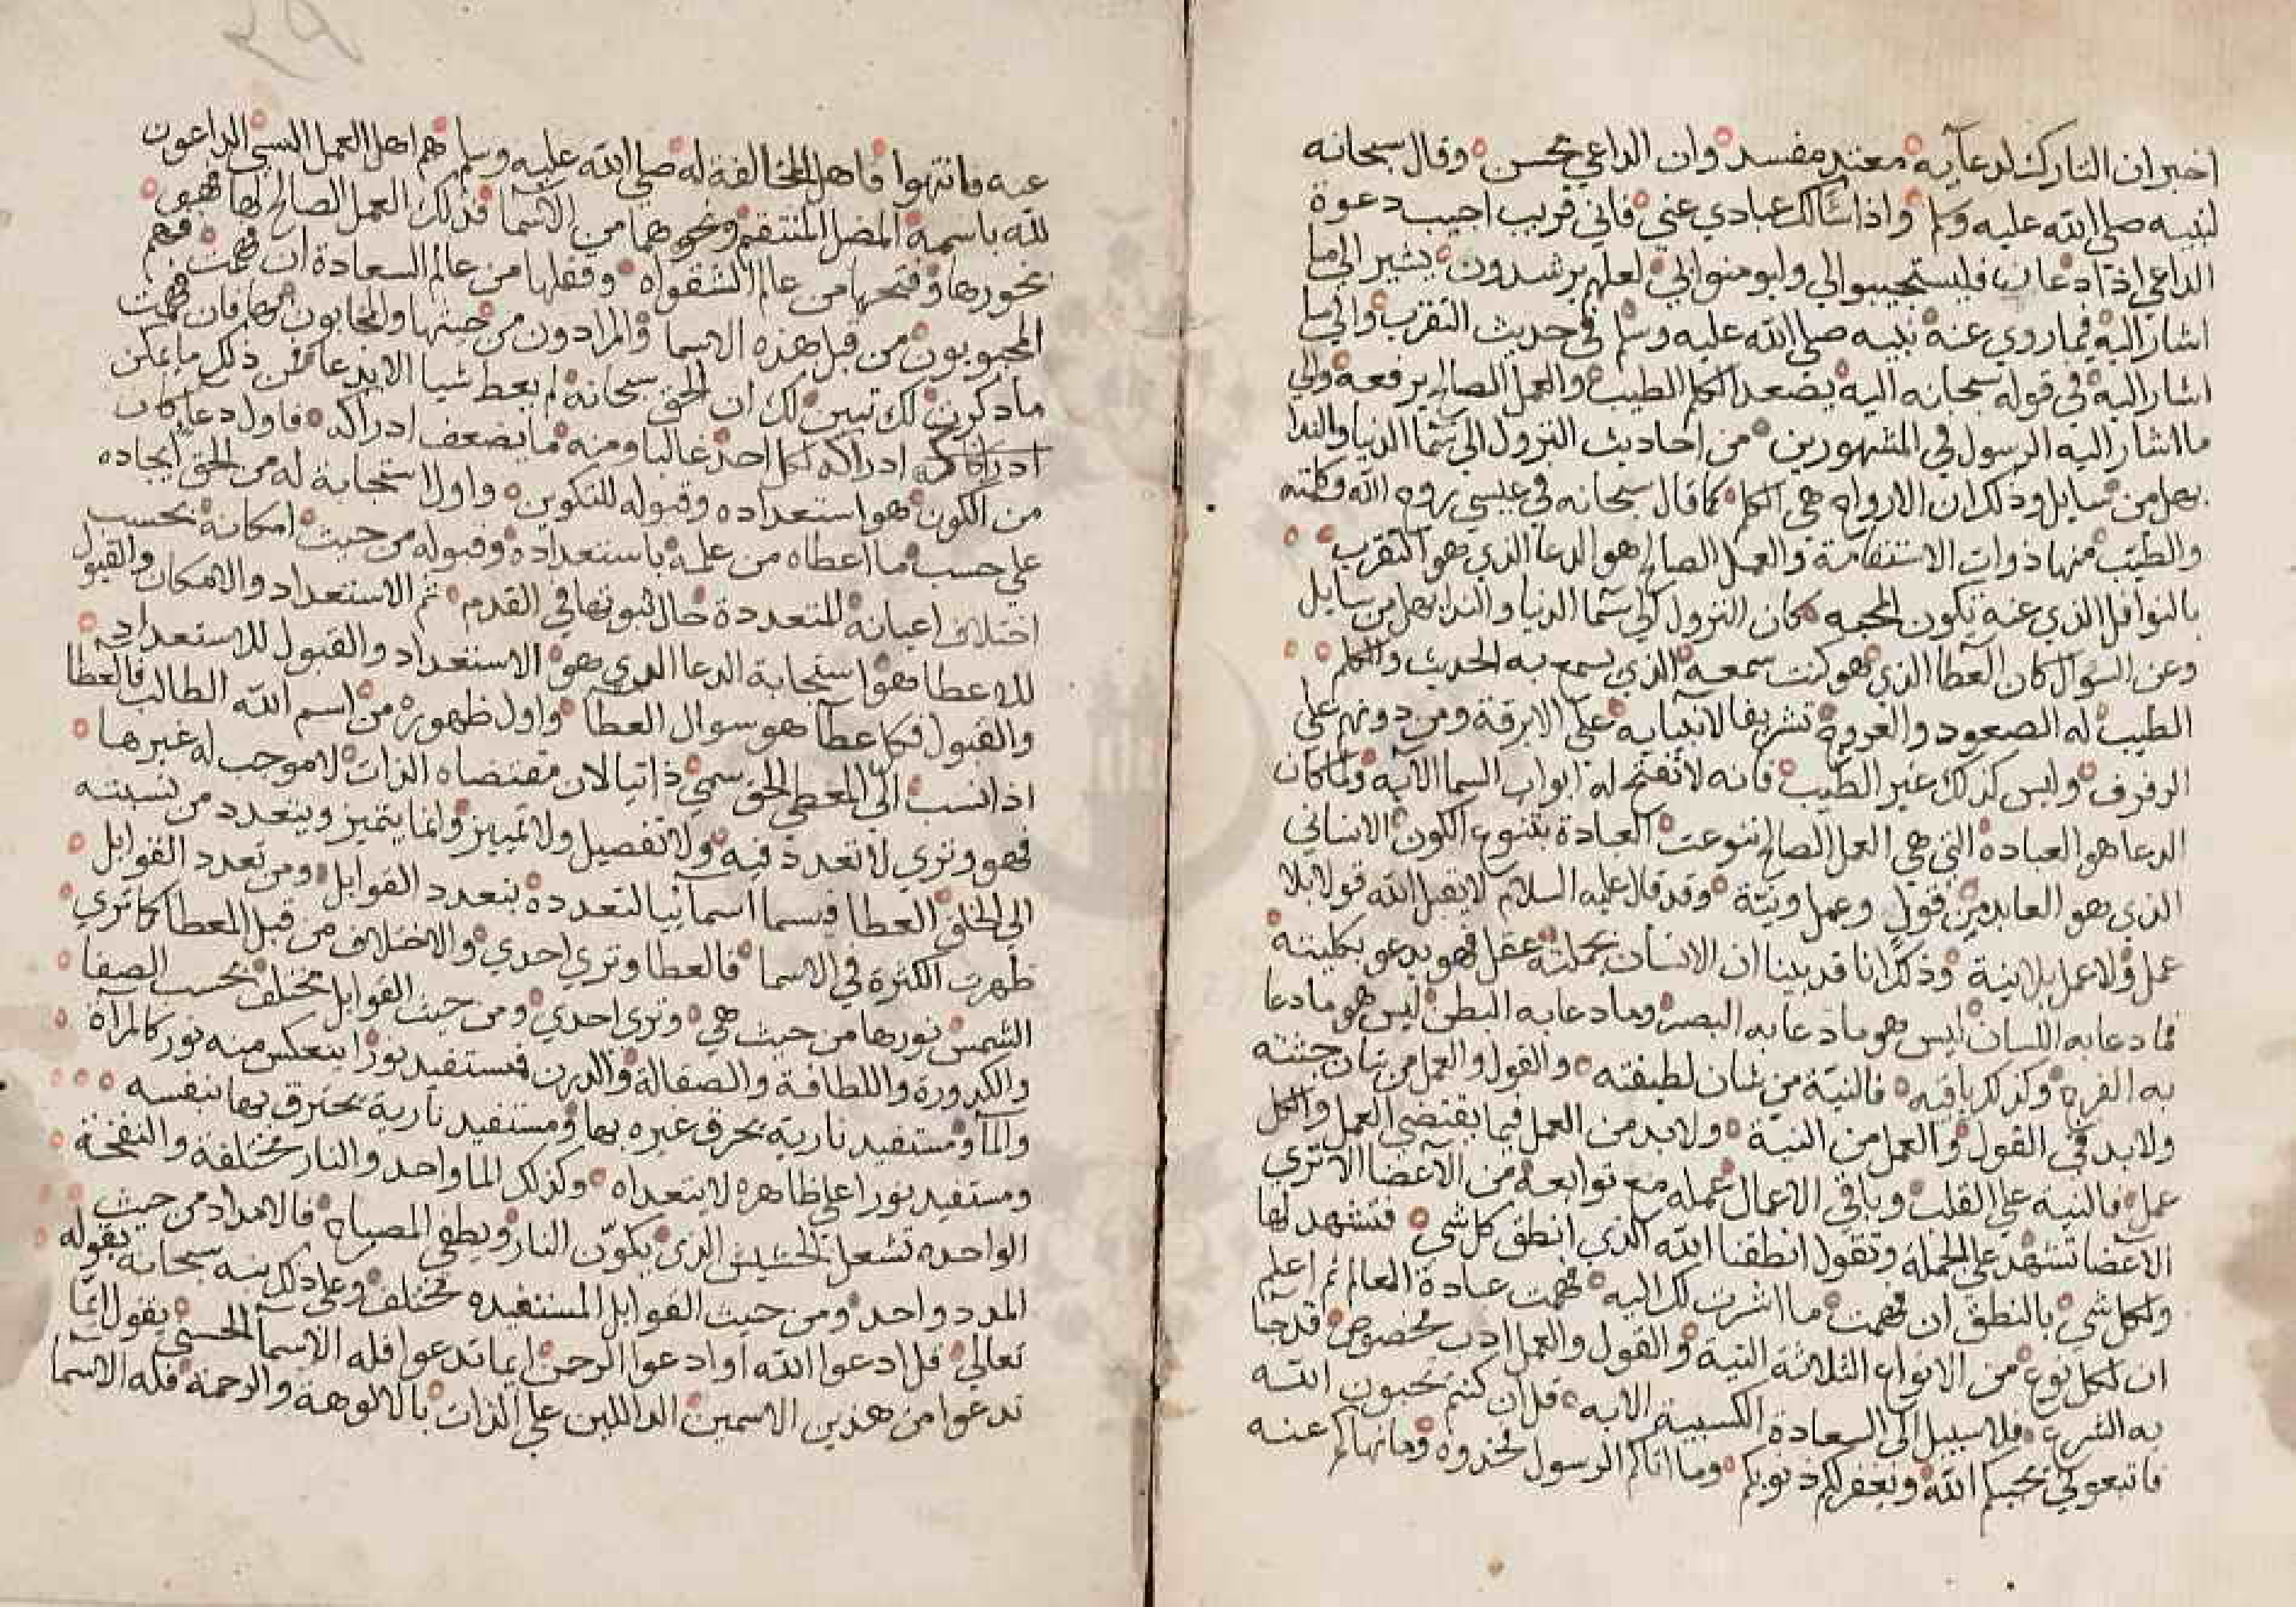 اخبر ان التارك لدعايه معتد مفسد وان الداعي محسن وقال سبحانه
لنبيه صلي الله عليه وسلم واذا سالك عبادي عني فاني قريب اجيب دعوة
الداعي اذا دعان فليستجيبوا لي وليومنوا بي لعلهم يرشدون يشير الي ما
اشار اليه فيما روي عنه نبيه صلي الله عليه وسلم في حديث التقرب والي ما
اشار اليه في قوله سبحانه اليه يصعد الكلم الطيب والعمل الصالح يرفعه والي
ما اشار اليه الرسول في المشهورين من احاديث النزول الي سما الدنيا والندا
بهل من سايل وذلك ان الارواح هي الكلم كما قال سبحانه في عيسي روح الله وكلمته
والطيب منها ذوات الاستقامة والعمل الصالح هو الدعا الذي هو التقرب
بالنوافل الذي عنه تكون المحبه فكان النزول الي سما الدنيا والندا بهل من سايل
وعن السوال كان العطا الذي هو كنت سمعه الذي يسمع به الحديث والكلم
الطيب له الصعود والعروج تشريفا لانبيايه علي الابرقة ومن دونهم علي
الرفرف وليس كذلك غير الطيب فانه لا تفتح له ابواب السما الايه ولما كان
الدعا هو العبادة التي هي العمل الصالح تنوعت العبادة بتنوع الكون الانساني
الذي هو العابد من قول وعمل ونية وقد قال عليه السلام لا يقبل الله قولا بلا
عمل ولا عمل بلا نية وذلك انا قد بينا ان الانسان بجملته عقل فهو يدعو بكليته
فما دعا به اللسان ليس هو ما دعا به البصر وما دعا به البطن ليس هو ما دعا
به الفرج وكذلك باقيه فالنية من شان لطيفته والقول والعمل من شان جثته
ولا بد في القول والعمل من النية ولا بد من العمل فيما يقتضي العمل والكل
عمل فالنيه علي القلب وباقي الاعمال عمله مع توابعه من الاعضا الا تري
الاعضا تشهد علي الجملة وتقول انطقنا الله الذي انطق كل شي فتشهد لها
ولكل شي بالنطق ان فهمت ما اشرت لك اليه فهمت عبادة العالم ثم اعلم
ان لكل نوع من الانواع الثلاثة النية والقول والعمل ادب مخصوص قد جا
به الشرع فلا سبيل الي السعادة الكسبية الا به قل ان كنتم تحبون الله
فاتبعوني يحببكم الله ويغفر لكم ذنوبكم وما اتاكم الرسول فخذوه وما نهاكم عنه
عنه فانتهوا فاهل المخالفة له صلي الله عليه وسلم هم اهل العمل السي الداعون
لله باسمه المضل المنتقم ونحوهما من الاسما فذلك العمل الصالح لها فهي
نحورها وفتحها من عالم الشقواه وقفلها من عالم السعادة ان فهمت فهم
المجبوبون من قبل هذه الاسما والمرادون من حيثها والمجابون منها فان فهمت
ما ذكرت لك تبين لك ان الحق سبحانه لم يعط شيا الا بدعا فمن ذلك ما يمكن
ادراكه لكل احد غالبا ومنه ما يضعف ادراكه فاول دعا كان
من الكون هو استعداده وقبوله للتكوين واول استجابة له من الحق ايجاده
علي حسب ما اعطاه من علمه باستعداده وقبوله من حيث امكانه بحسب
اختلاف اعيانه المتعددة حال ثبوتها في القدم ثم الاستعداد والامكان والقبول
للاعطا فهو استجابة الدعا الذي هو الاستعداد والقبول للاستعداد
والقبول فكل عطا هو سوال العطا واول ظهوره من اسم الله الطالب فالعطا
اذا نسب الي المعطي الحق سمي ذاتيا لان مقتضاه الذات لا موجب له غيرها
فهو وتري لا تعدد فيه ولا تفصيل ولا تمييز وانما يتميز ويتعدد من نسبته
الي الخلق العطا فيسما اسمائيا لتعدده بتعدد القوابل ومن تعدد القوابل
ظهرت الكثرة في الاسما فالعطا وتري احدي والاختلاف من قبل المعطا كما تري
الشمس نورها من حيث هي وتري احدي ومن حيث القوابل مختلف بحسب الصفا
والكدورة واللطافة والصقالة والدرن فمستفيد نورا ينعكس منه نور كالمراة
والما ومستفيد نارية يحرق غيره بها ومستفيد نارية يحترق بها بنفسه
ومستفيد نورا علي ظاهره لا يتعداه وكذلك الما واحد والنار مختلفة والنفخة
الواحده تشعل الحشيش الذي يكون النار ويطفي المصباح فالامداد من حيث
المدد واحد ومن حيث القوابل المستفيده مختلف وعلي ذلك نبه سبحانه بقوله
تعالي قل ادعوا الله او ادعوا الرحمن ايا ما تدعوا فله الاسما الحسني يقول ايما
تدعوا من هذين الاسمين الدالين علي الذات بالالوهة والرحمة فله الاسما